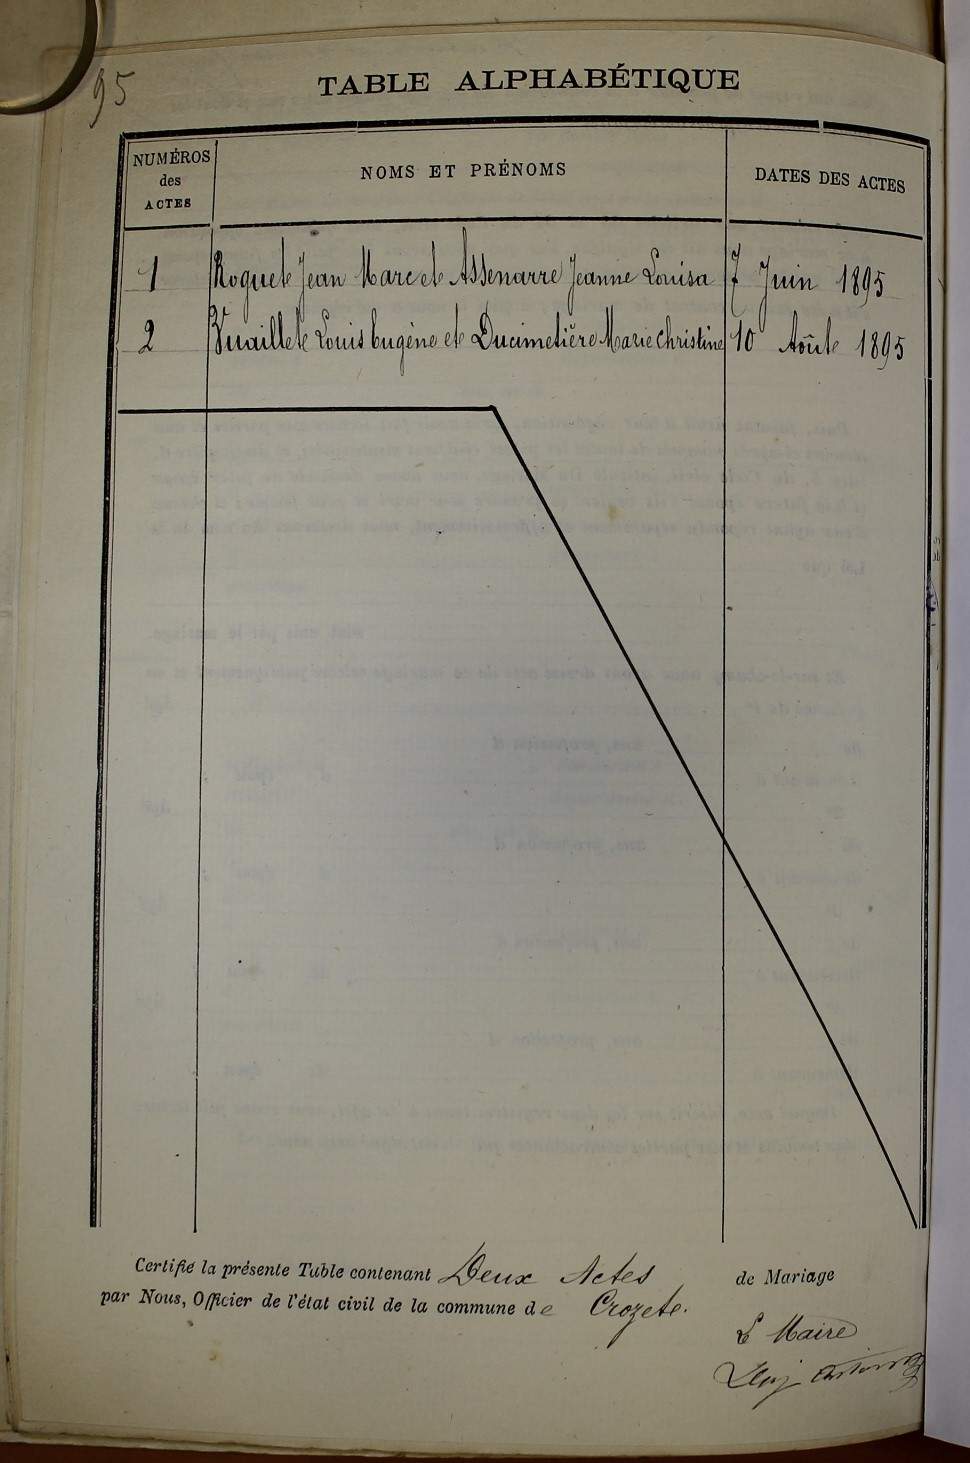 95
TABLE ALPHABÉTIQUE
NUMÉROS
des
ACTES
NOMS ET PRÉNOMS
DATES DES ACTES
1 Roguet Jean Marc et Assenarre Jeanne Louisa 7 Juin 1895
2 Vuaillet Louis Eugène et Ducimetière Marie Christine 10 Août 1895
Certifié la présente Table contenant Deux Actes de Mariage
par Nous, Officier de l'état civil de la commune de Crozet.
L Maire